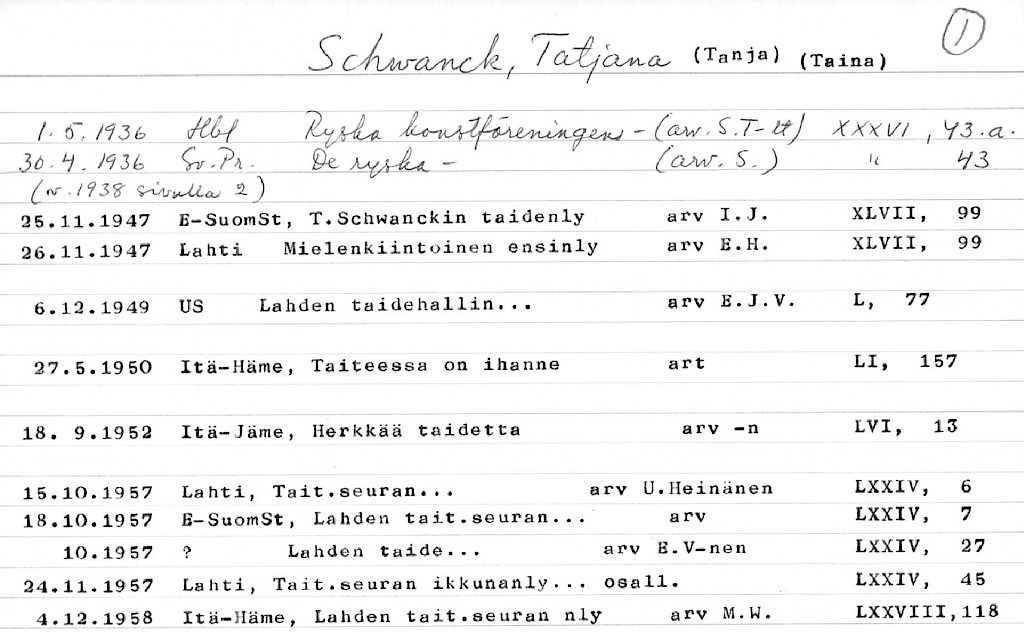 1
Schwanck, Tatjana (Tanja) (Taina)
1.5.1936 Hbl Ryska konstföreningens - (arv. S.T-lt) XXXVI, 43.a.
30.4.1936 Sv.Pr. De ryska - (arv. S.) " 43
(v. 1938 sivulla 2)
25.11.1947 E-SuomSt, T.Schwanckin taidenly arv I.J. XLVII, 99
26.11.1947 Lahti Mielenkiintoinen ensinly arv E.H. XLVII, 99
6.12.1949 US Lahden taidehallin... arv E.J.V. L, 77
27.5.1950 Itä-Häme, Taiteessa on ihanne art LI, 157
18. 9.1952 Itä-Jäme, Herkkää taidetta arv -n LVI, 13
15.10.1957 Lahti, Tait.seuran... arv U.Heinänen LXXIV, 6
18.10.1957 E-SuomSt, Lahden tait.seuran... arv LXXIV, 7
10.1957 ? Lahden taide... arv E.V-nen LXXIV, 27
24.11.1957 Lahti, Tait.seuran ikkunanly... osall. LXXIV, 45
4.12.1958 Itä-Häme, Lahden tait.seuran nly arv M.W. LXXVIII,118